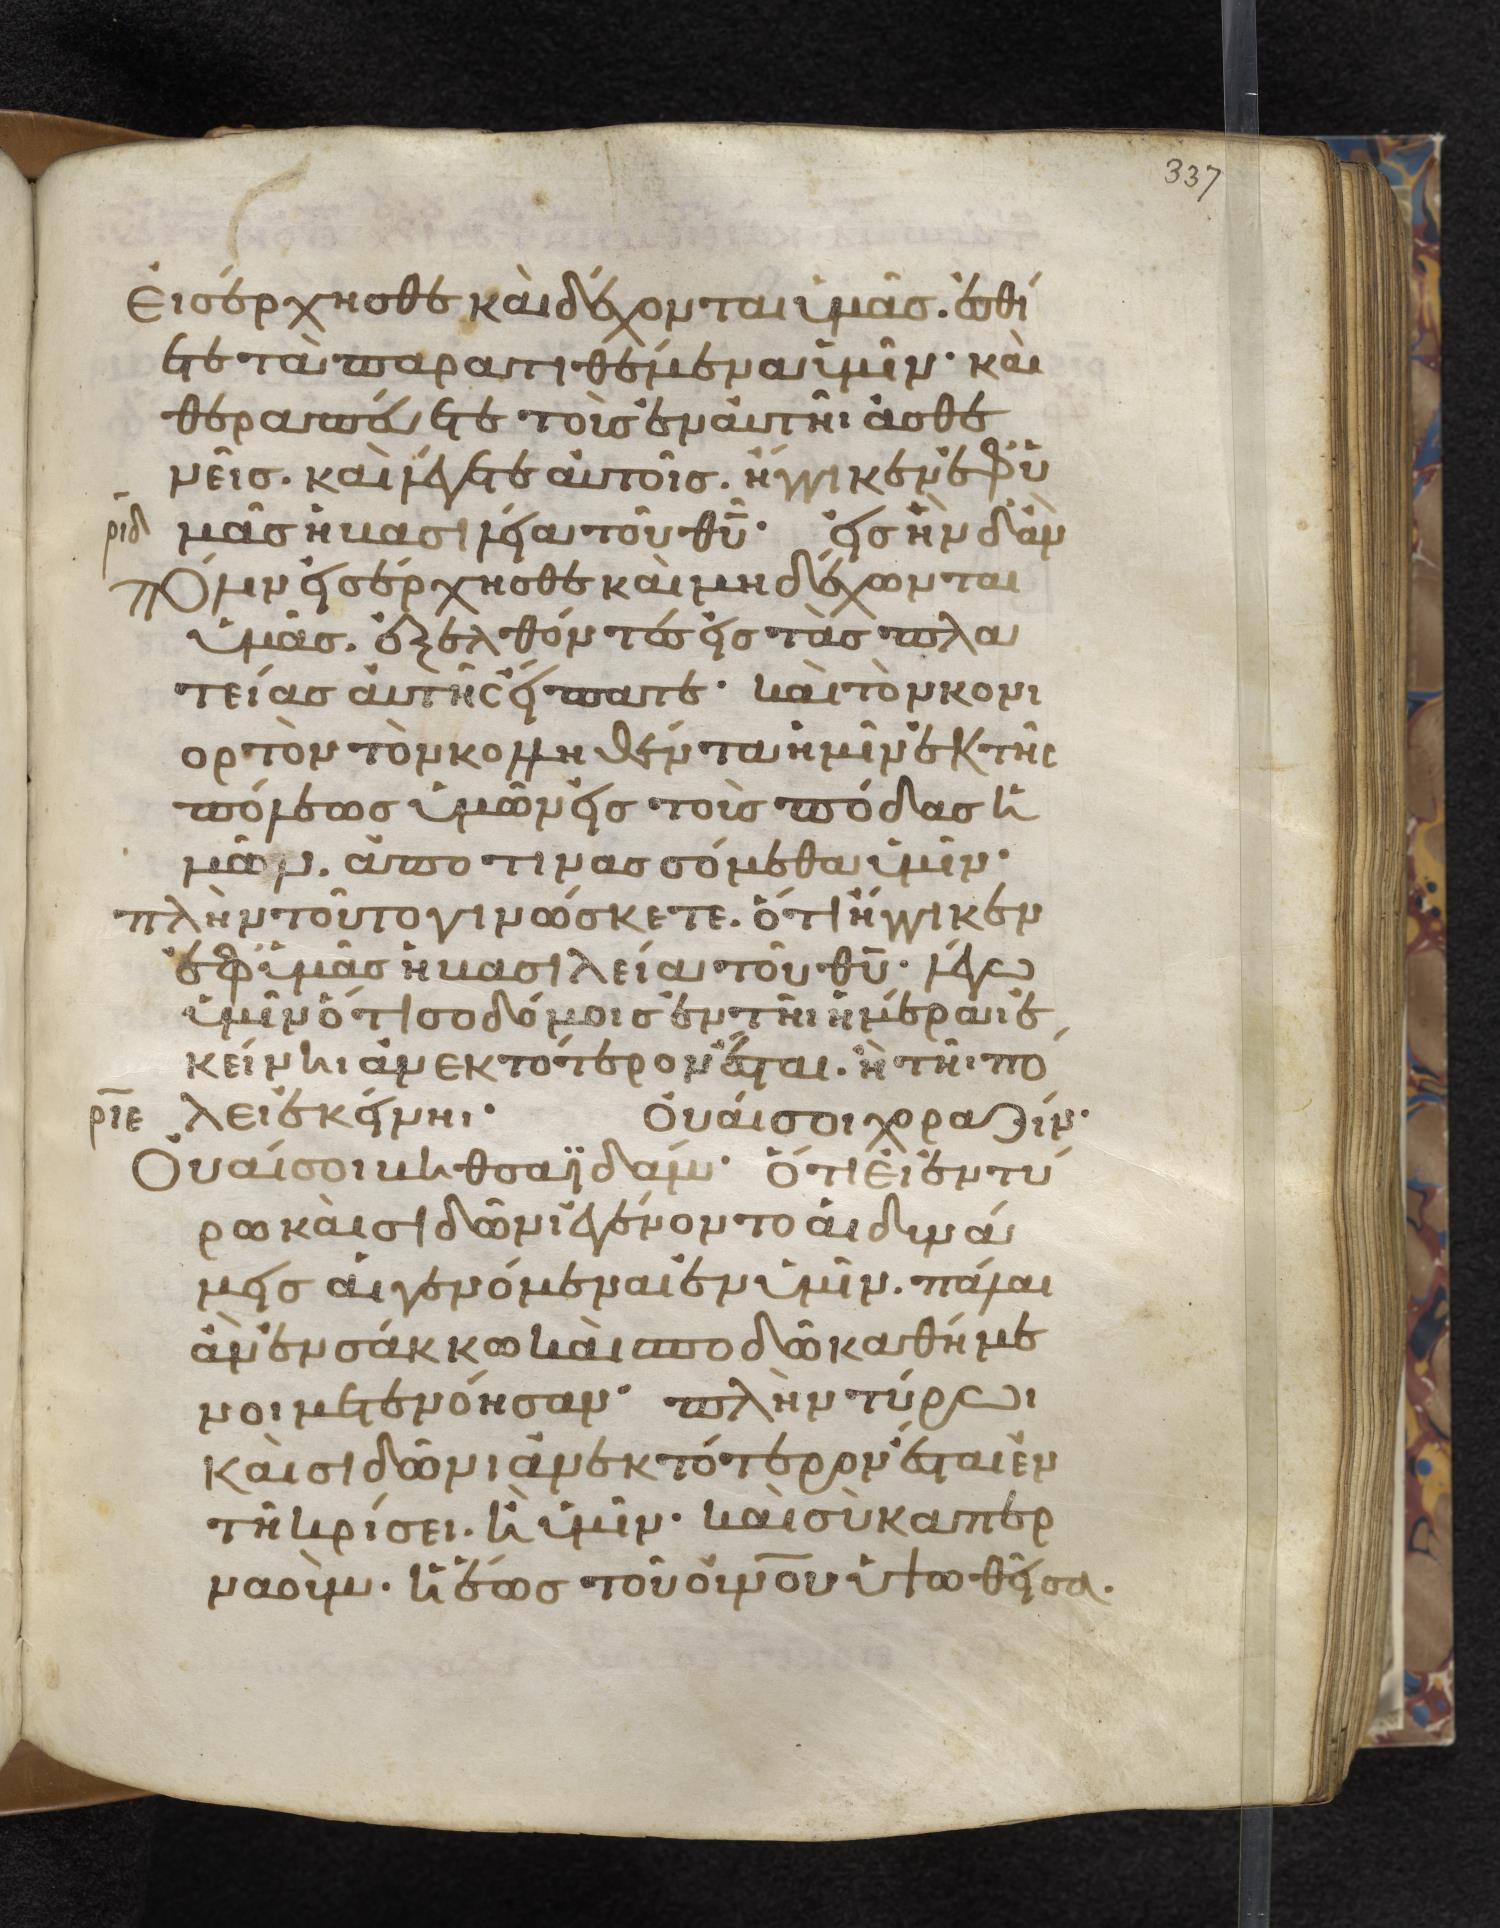 337
ἐισέρχησθε κὰι δέχονται ὑμᾶς. ἐσθί
ετε τὰ παρατιθέμενα ὑμῖν· κὰι
θεραπέυετε τοὶς ἐν ἀυτῆι ἀσθε
νεῖς. καὶ λέγετε ἀυτοῖς. ἤγγικεν ἐφ ὑ
ρῑδ μᾶς ἡ βασιλεία τοῦ θῡ· εἰς ἣν δἂν
πόλιν εἰσέρχησθε κὰι μὴ δέχωνται
ὑμᾶς. ἐξελθόντες εἰς τὰς πλα
τείας ἀυτῆς εἴπατε· κὰι τὸν κονι
ορτὸν τὸν κολληθέντα ἡμῖν ἐκ τῆς
πόλεως ὑμῶν εἰς τοὺς πόδας ἡ
μῶν. ἀπο τινασσόμεθα ὑμῖν·
πλὴν τοῦτο γινώσκετε. ὅτι ἤγγικεν
ἐφ ὑμᾶς ἡ βασιλεία τοῦ θῡ· λέγω
ὑμῖν ὅτι σοδόμοις ἐν τῆι ἡμέραι ἐ
κείνηι ἀνεκτότερον ἔσται. ἢ τῆι πό
ρῑε λει ἐκείνηι· ὀυάι σοι χοραζίν·
ὀυαί σοι βηθσαϊδάν· ὅτι ἐι ἐν τύ
ρω κὰι σιδῶνι ἐγένοντο ἁι δυνά
μεις ἁι γενόμεναι ἐν ὑμῖν. πάλαι
ἂν ἐν σάκκω κὰι σποδῶ καθήμε
νοι μετενόησαν· πλὴν τύρωι
κὰι σιδῶνι ἀνεκτότερον ἔσται ἐν
τῆ κρίσει. ἢ ὑμῖν· κὰι σὺ καπερ
ναούμ. ἡ ἕως τοῦ ὀυνοῡ ὑψωθεῖσα.